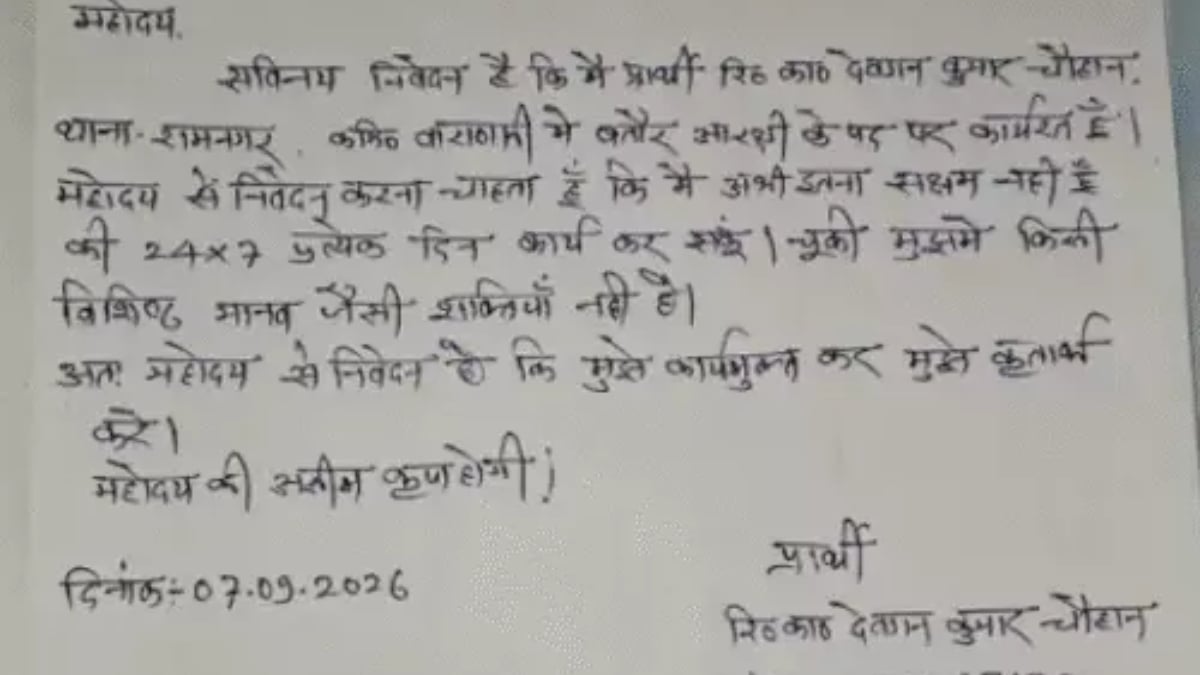 महोदय.
सविनय निवेदन है कि मै प्रार्थी रि० का० देवगन कुमार चौहान.
थाना- रामनगर, कमि० वाराणसी मे बतौर आरक्षी के पद पर कार्यरत हूँ।
महोदय से निवेदन करना चाहता हूँ कि मै अभी इतना सक्षम नही हूँ
की 24x7 प्रत्येक दिन कार्य कर सकूं। चूकी मुझमे किसी
विशिष्ट मानव जैसी शक्तियाँ नही है।
अतः महोदय से निवेदन है कि मुझे कार्यमुक्त कर मुझे कृतार्थ
करे।
महोदय की असीम कृपा होगी।
दिनांक:- 07.09.2026
प्रार्थी
रि० का० देवगन कुमार चौहान